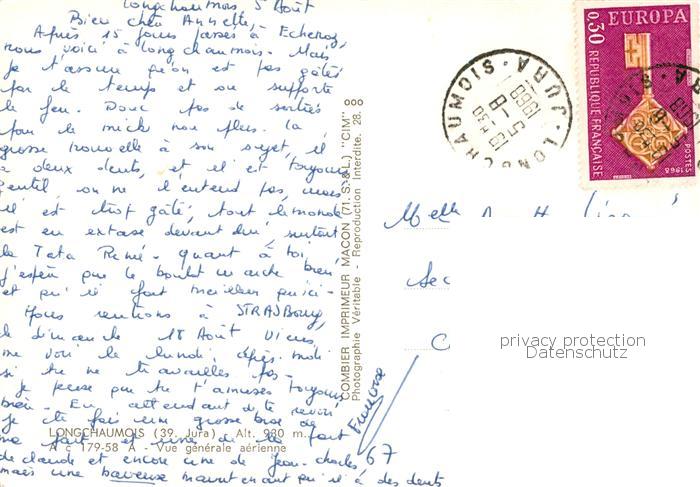 Longchaumois 5 Août
Bien chère Annette,
Après 15 jours passés à Echenoz,
nous voici à Longchaumois. Mais
je t'assure qu'on est pas gâtés
par le temps et on supporte
le feu. Donc pas de sorties
pour le mich non plus. La
grosse nouvelle à son sujet, il
a deux dents, et il est toujours
gentil on ne l'entend pas, mais
il est trop gâté, tout le monde
est en extase devant lui surtout
la Tata René. Quant à toi,
j'espère que le boulot marche bien
et qu'il fait meilleur qu'ici.
Nous rentrons à STRASBOURG,
le dimanche 18 Août. Viens
me voir le lundi après-midi
si tu ne travailles pas.
Je pense que tu t'amuses toujours
bien. En attendant de te revoir
je te fais une grosse bise de
ma part et une de la part
de claude et encore une de Jean-charles,
mais une baveuse maintenant qu'il a des dents
Françoise
LONGCHAUMOIS (39. Jura) - Alt. 930 m.
A c 179-58 A - Vue générale aérienne
67
COMBIER IMPRIMEUR MACON (71. S.-&-L.) "CIM"
Photographie Véritable - Reproduction Interdite. 28.
LONGCHAUMOIS
JURA
18 H 30
5 - 8
1968
EUROPA
0,30
REPUBLIQUE FRANÇAISE
POSTES 1968
Melle
privacy protection
Datenschutz